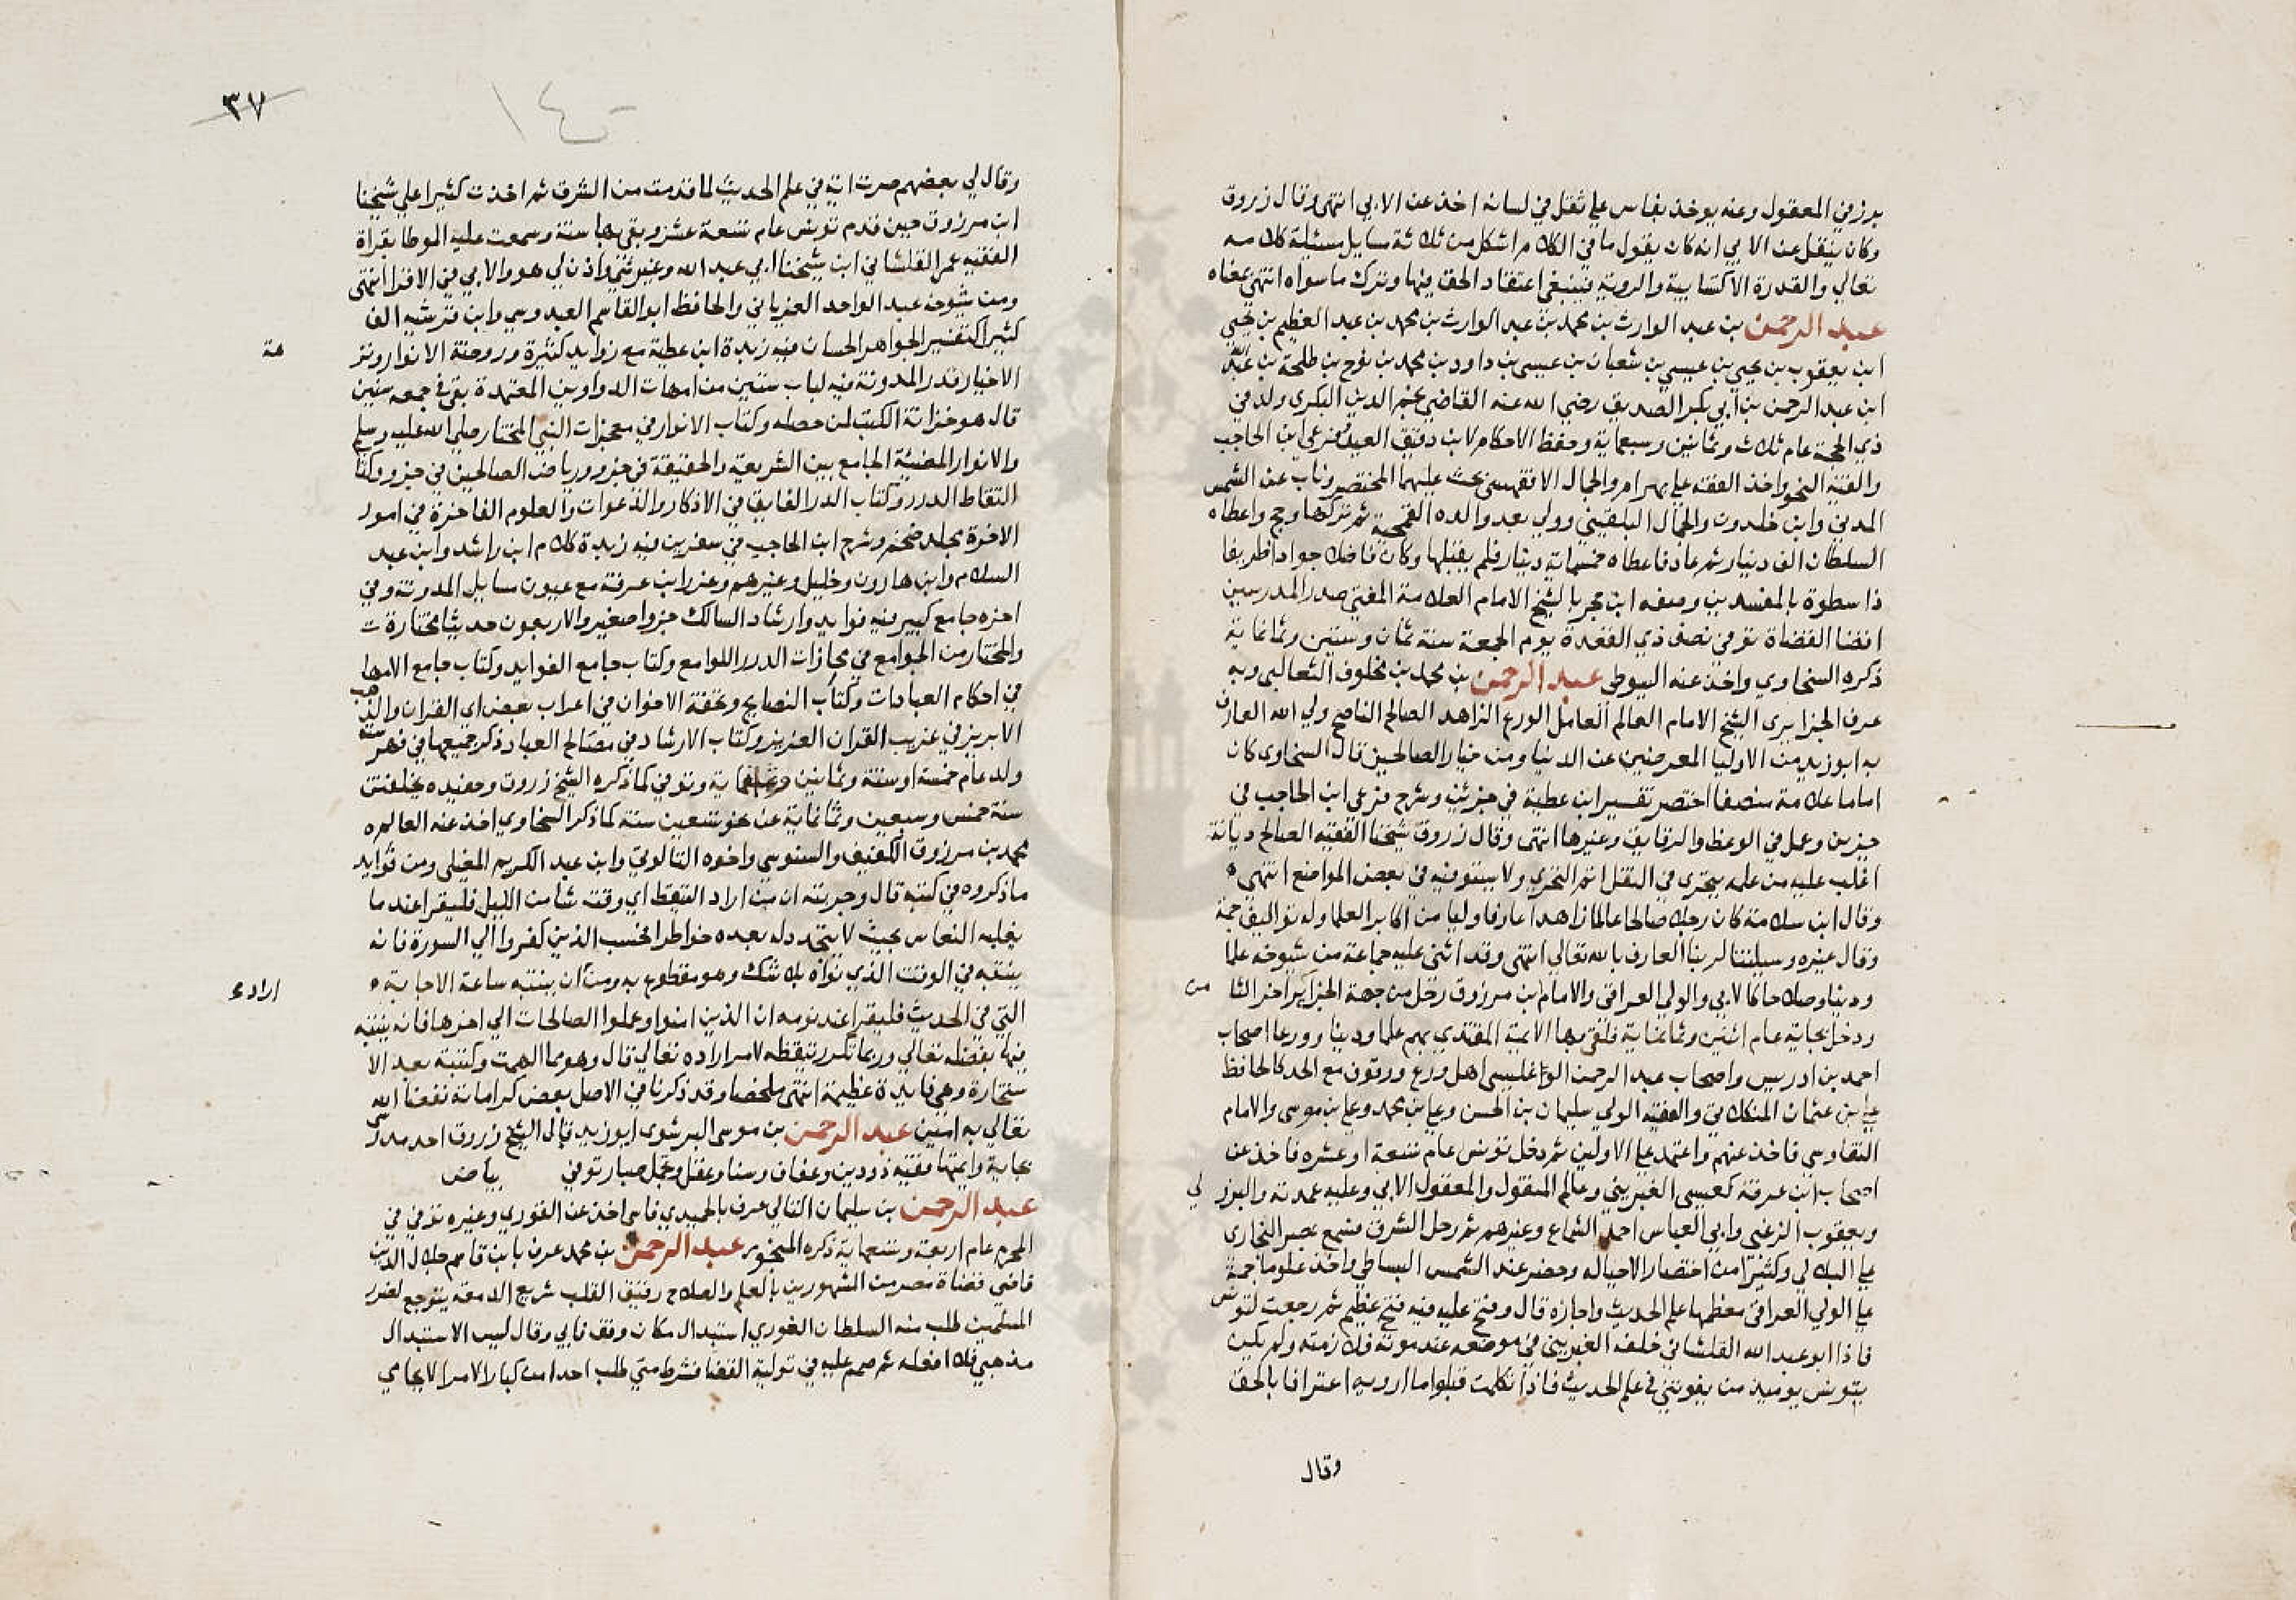 برز في المعقول وعنه يوخذ بفاس علي ثقل في لسانه اخذ عن الابي انتهى وقال زروق
وكان ينقل عن الابي انه كان يقول ما في الكلام اشكل من ثلاثة مسايل مسئلة كلامه
تعالي والقدرة الاكتسابية والروية فينبغي اعتقاد الحق فيها وترك ما سواه انتهى بمعناه
عبد الرحمن بن عبد الوارث بن محمد بن عبد الوارث بن محمد بن عبد العظيم بن يحيي
ابن يعقوب بن يحيي بن عيسي بن شعبان بن عيسى بن داود بن محمد بن نوح بن طلحة بن عبد الله
ابن عبد الرحمن بن ابي بكر الصديق رضي الله عنه القاضي نجم الدين البكرى ولد في
ذي الحجة عام ثلاث وثمانين وسبعماية وحفظ الاحكام لابن دقيق العيد وفرعي ابن الحاجب
والفية النحو واخذ الفقه علي بهرام والجمال الاقفهسي بحث عليهما المختصر وناب عن الشمس
المدني وابن خلدون والجمال البلقيني وولي بعد والده القمحية ثم تركها وحج واعطاه
السلطان الف دينار ثم عاد فاعطاه خمسماية دينار فلم يقبلها وكان فاضلا جوادا ظريفا
ذا سطوة بالمفسدين وصفه ابن حجر بالشيخ الامام العلامة المفتي صدر المدرسين
اقضا القضاة توفي نصف ذي القعدة يوم الجمعة سنة ثمان وستين وثمانماية
ذكره السخاوي واخذ عنه السيوطي عبد الرحمن بن محمد بن مخلوف الثعالبي وبه
عرف الجزايرى الشيخ الامام العالم العامل الورع الزاهد الصالح الناصح ولي الله العارف
به ابو زيد من الاوليا المعرضين عن الدنيا ومن خيار الصالحين قال السخاوى كان
اماما علامة مصنفا اختصر تفسير ابن عطية في جزئين وشرح فرعي ابن الحاجب في
جزين وعمل في الوعظ والرقايق وغيرها انتهى وقال زروق شيخنا الفقيه الصالح ديانته
اغلب عليه من علمه يتحري في النقل اتم التحري ولا يستوفيه في بعض المواضع انتهي
وقال ابن سلامة كان رجلا صالحا عالما زاهدا عارفا وليا من اكابر العلما وله تواليف جمة
وقال غيره وسيلتنا لربنا العارف بالله تعالي انتهى وقد اثنى عليه جماعة من شيوخه علما
ودينا وصلاحا كالابي والولي العراقى والامام ابن مرزوق رحل من جهة الجزاير اخر الثا من
ودخل بجاية عام اثنين وثمانماية فلقي بها الايمة المقتدي بهم علما ودينا وورعا اصحاب
احمد بن ادريس واصحاب عبد الرحمن الوغليسى اهل ورع ووقوف مع الحد كالحافظ
علي بن عثمان المنكلاتي والفقيه الولي سليمان بن الحسن وعلي بن محمد وعلي بن موسى والامام
النقاوسي فاخذ عنهم واعتمد علي الاولين ثم دخل تونس عام تسعة او عشره فاخذ عن
اصحاب ابن عرفة كعيسى الغبريني وعالم المنقول والمعقول الابي وعليه عمدته والبرز لي
ويعقوب الزغبي وابي العباس احمد الشماع وغيرهم ثم رحل الشرق فسمع بمصر البخارى
علي البلالي وكثيرا من اختصار الاحيا له وحضر عند الشمس البساطي واخذ علوما جمة
علي الولي العراقى معظمها علم الحديث واجازه قال وفتح عليه فيه فتح عظيم ثم رجعت لتونس
فاذا ابو عبد الله القلشاني خلف الغبريني في موضعه عند موته فلازمته ولم يكن
بتونس يوميذ من يفوتني في علم الحديث فاذا تكلمت قبلوا ما ارويه اعترافا بالحق
وقال
٣٧
١٤٠
وقال لي بعضهم صرت اية في علم الحديث لما قدمت من الشرق ثم اخذت كثيرا علي شيخنا
ابن مرزوق حين قدم تونس عام تسعة عشر وبقي بها سنة وسمعت عليه الموطا بقراة
الفقيه عمر القلشاني ابن شيخنا ابي عبد الله وغير شي واذن لي هو والابي في الاقرا انتهى
ومن شيوخه عبد الواحد الغرياني والحافظ ابو القاسم العبدوسي وابن قرشيه الف
كثيرا كتفسير الجواهر الحسان فيه زبدة ابن عطية مع زوايد كثيرة وروضة الانوار ونز
هة
الاخيار قدر المدونة فيه لباب ستين من امهات الدواوين المعتمدة بقي في جمعه سنين
قال هو خزانة الكتب لمن حصله وكتاب الانوار في معجزات النبي المختار صلي الله عليه وسلم
والانوار المضيئة الجامع بين الشريعة والحقيقة في جزو ورياض الصالحين في جزو وكتاب
التقاط الدرر وكتاب الدر الفايق في الاذكار والدعوات والعلوم الفاخرة في امور
الاخرة مجلد ضخم وشرح ابن الحاجب في سفرين فيه زبدة كلام ابن راشد وابن عبد
السلام وابن هارون وخليل وغيرهم وغرر ابن عرفة مع عيون مسايل المدونة وفي
اخره جامع كبير فيه فوايد وارشاد السالك جزوا صغير والاربعون حديثا مختارة
والمختار من الجوامع في محاذات الدرر اللوامع وكتاب جامع الفوايد وكتاب جامع الامهات
في احكام العبادات وكتاب النصايح وتحفة الاخوان في اعراب بعض اي القران والذهب
الابريز في غريب القران العزيز وكتاب الارشاد في مصالح العباد ذكر جميعها في فهرسته
ولد عام خمسة او ستة وثمانين وسبعماية وتوفي كما ذكره الشيخ زروق وحفيده
سنة خمس وسبعين وثمانماية عن نحو تسعين سنة كما ذكر السخاوي اخذ عنه العالم
محمد بن مرزوق الكفيف والسنوسي واخوه التالوتي وابن عبد الكريم المغيلي ومن فوايد
ما ذكروه في كتبه قال وجربته ان من اراد التيقظ اي وقت شا من الليل فليقرا عند ما
يغلبه النعاس بحيث لا يتجدد له بعده خواطر افحسب الذين كفروا الي السورة فانه
ينتبه في الوقت الذي نواه بلا شك وهو مقطوع به ومن ان ينتبه ساعة الاجابة
اراد
التي في الحديث فليقرا عند نومه ان الذين امنوا وعملوا الصالحات الي اخرها فانه ينتبه
فيها بفضله تعالي وربما تكرر تيقظه لامر اراده تعالي قال وهو مما الهمت وكتبته بعد الا
ستخارة وهي فايدة عظيمة انتهى ملخصا وقد ذكرنا في الاصل بعض كراماته نفعنا الله
تعالي به امين عبد الرحمن بن موسى البرشوى ابو زيد قال الشيخ زروق احد مدرسي
بجاية وايمتها فقيه ذو دين وعفاف وسنا وعقل وتحمل صبار توفي بياض
عبد الرحمن بن سليمان التنالي عرف بالحميدي فاسي اخذ عن القوري وغيره توفي في
المحرم عام اربعة وتسعماية ذكره المنجور عبد الرحمن بن محمد عرف بابن قاسم جلال الدين
قاضى قضاة مصر من المشهورين بالعلم والصلاح رقيق القلب سريع الدمعة يتوجع لضرر
المسلمين طلب منه السلطان الغوري استبدال مكان وقف فابي وقال ليس الاستبدال
مذهبي فلا افعله ثم صمم عليه في تولية القضا فشرط متي طلب احدا من كبار الامرا لا يحامي